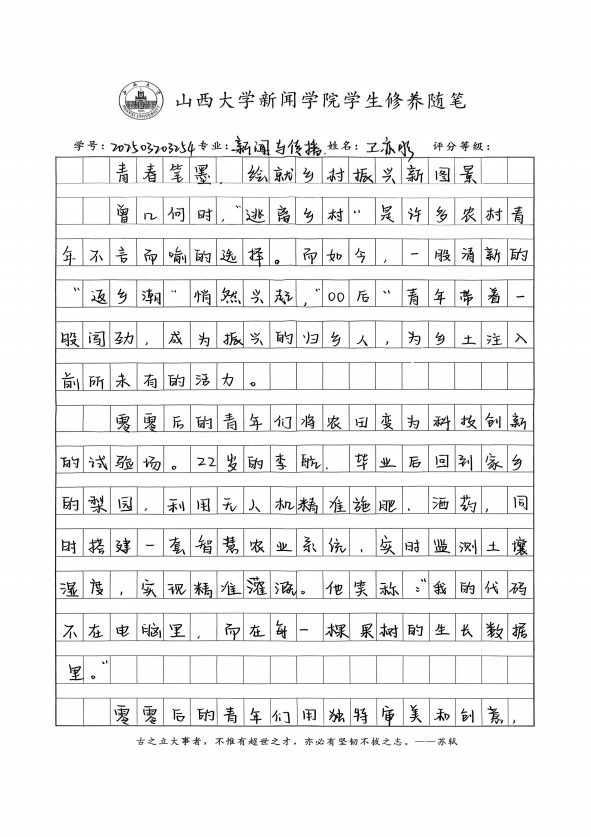 山西大学新闻学院学生修养随笔
学号：202503203254 专业：新闻与传播 姓名：卫亦彤 评分等级：
青春笔墨，绘就乡村振兴新图景
曾几何时，“逃离乡村”是许多农村青
年不言而喻的选择。而如今，一股清新的
“返乡潮”悄然兴起，“00后”青年带着一
股闯劲，成为振兴的归乡人，为乡土注入
前所未有的活力。
零零后的青年们将农田变为科技创新
的试验场。22岁的李航，毕业后回到家乡
的梨园，利用无人机精准施肥、洒药，同
时搭建一套智慧农业系统，实时监测土壤
湿度，实现精准灌溉。他笑称：“我的代码
不在电脑里，而在每一棵果树的生长数据
里。”
零零后的青年们用独特审美和创意，
古之立大事者，不惟有超世之才，亦必有坚韧不拔之志。——苏轼